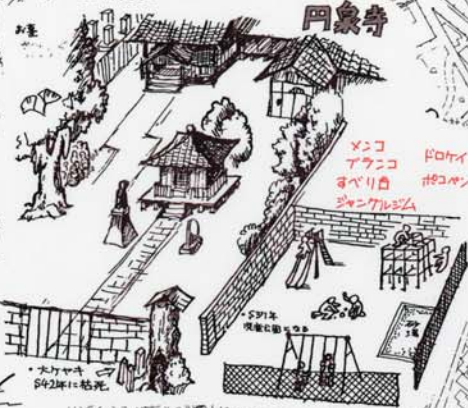 お墓
円泉寺
メンコ
ブランコ
すべり台
ジャングルジム
ドロケイ
ポコペン
・S37年
児童公園になる
砂場
・大ケヤキ
S42年に枯死